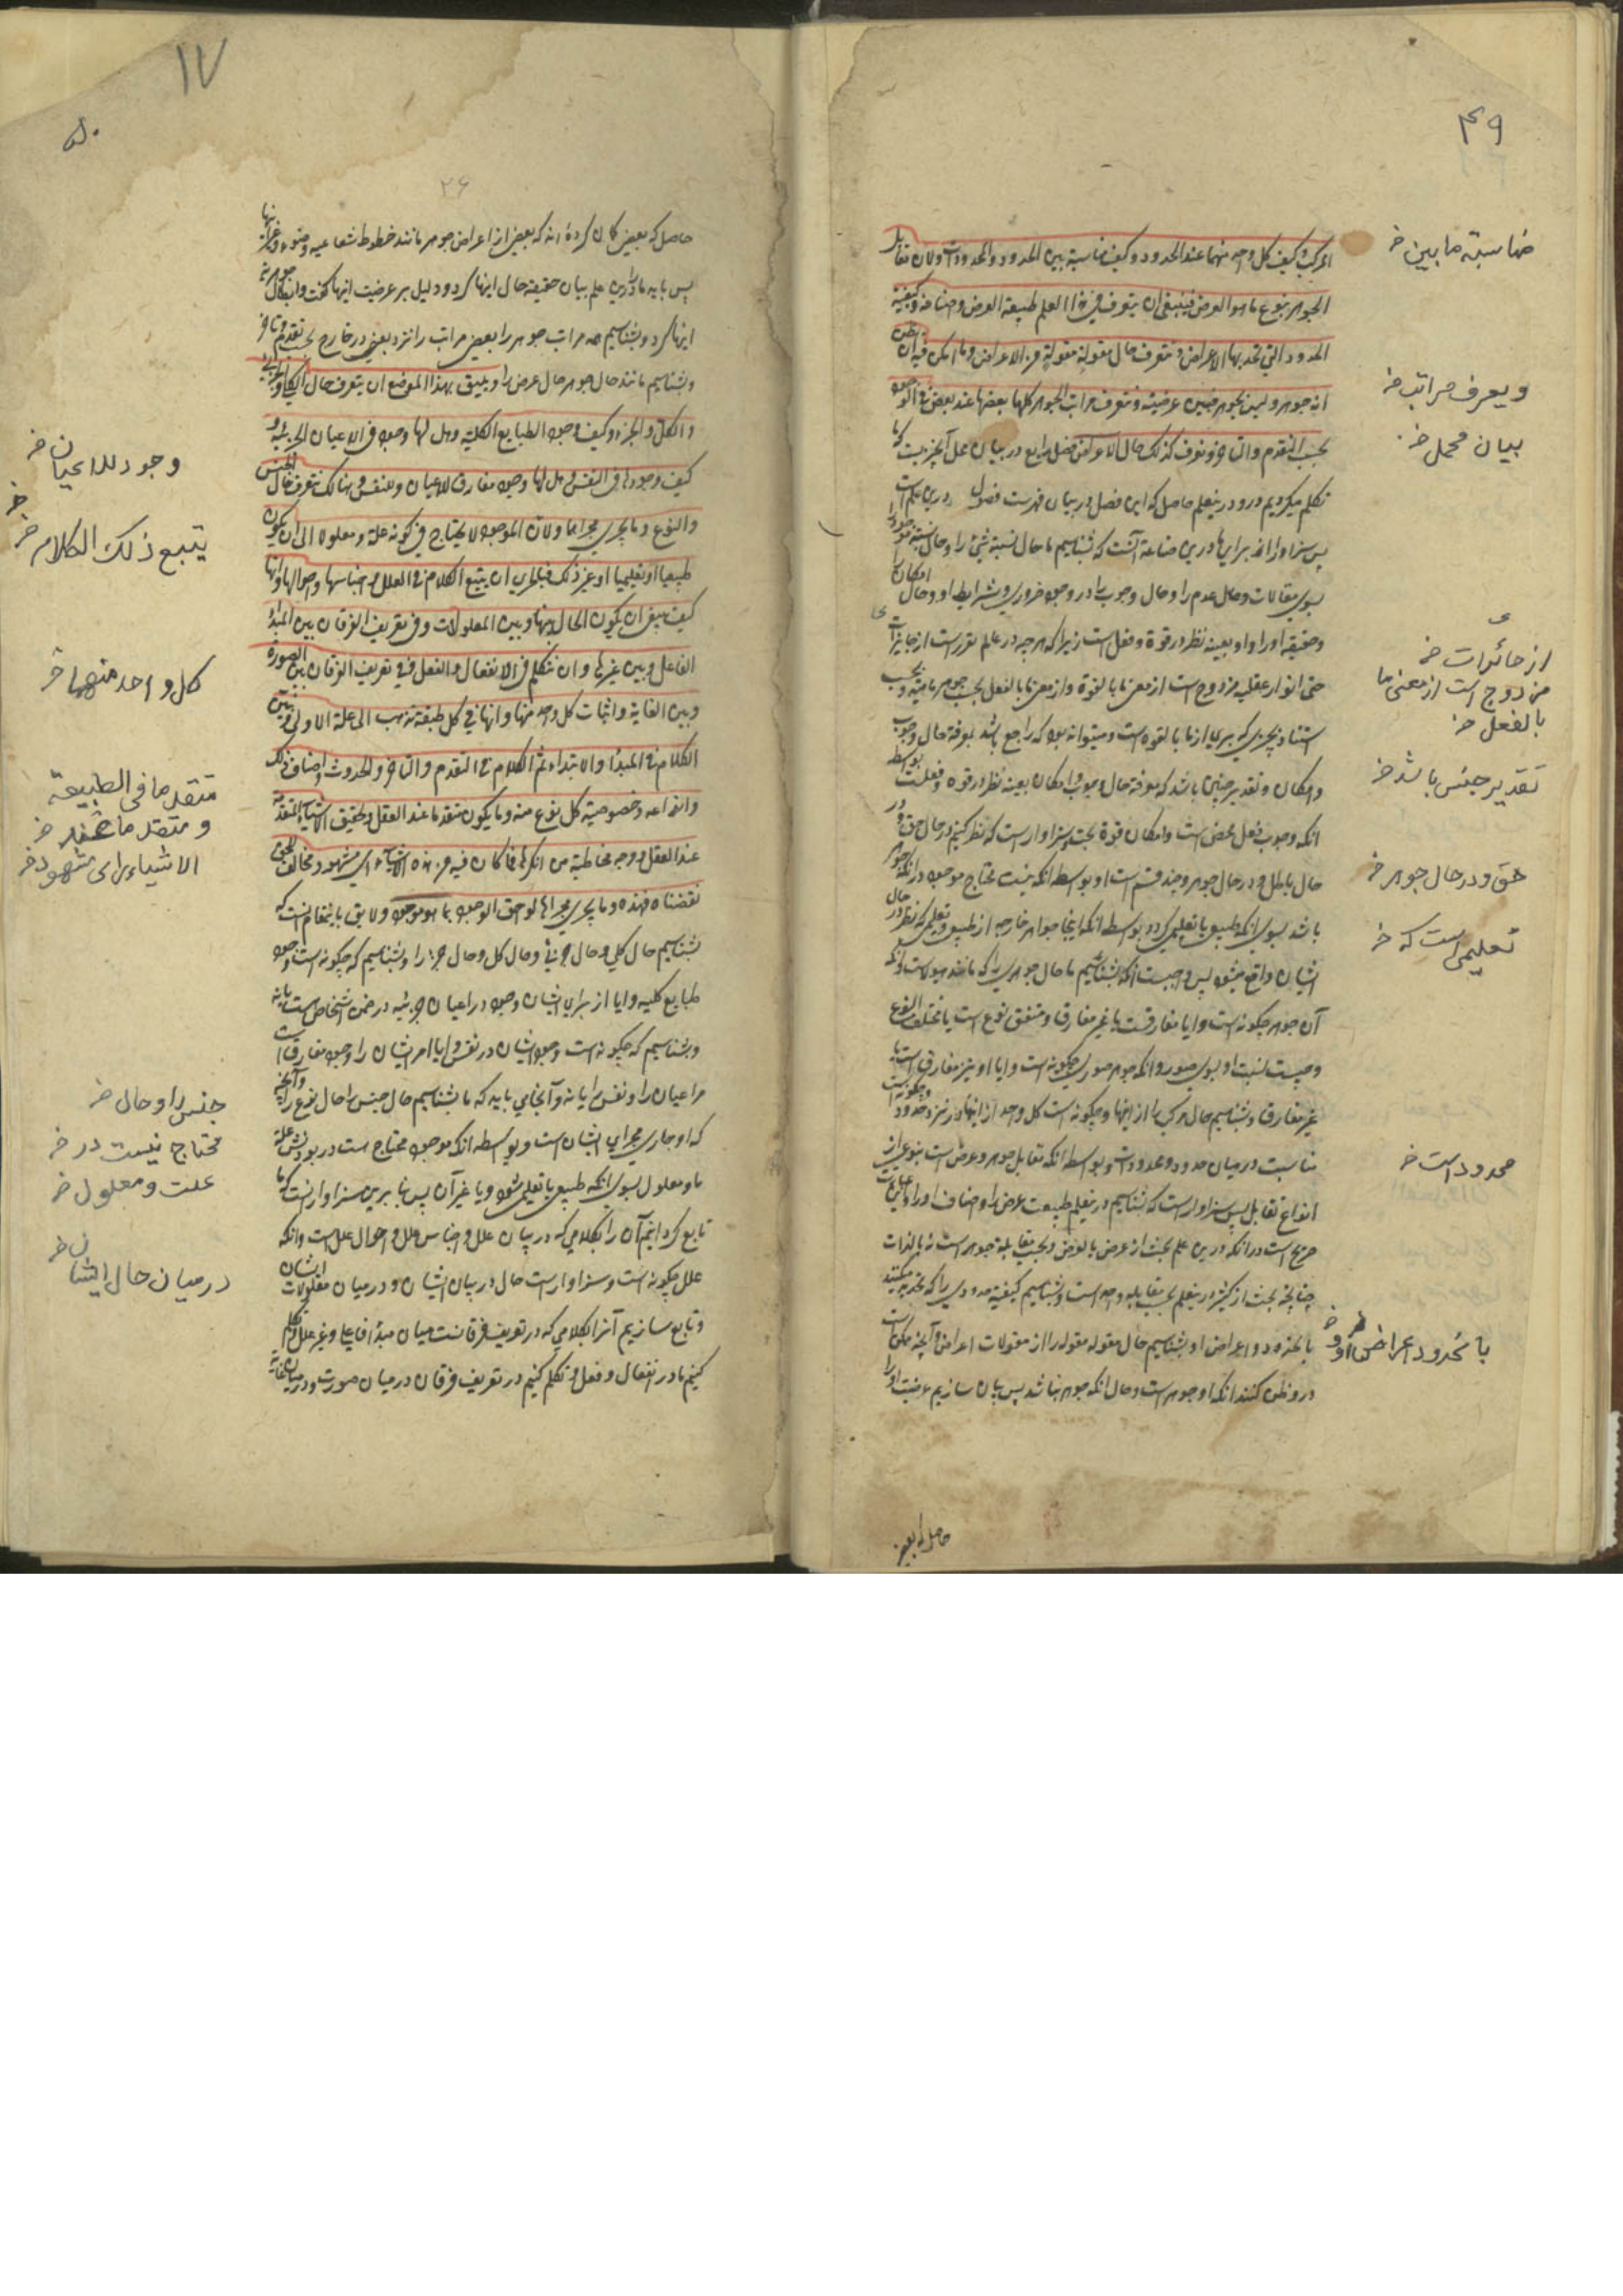 ۴۹
المركب وكيف كل واحد منهما عند الحدود وكيف مناسبة بين الحدود والمحدودات ولان مقابل
الجوهر بنوع ما هو العرض فينبغي ان يتعرف في هذا العلم طبيعة العرض واصنافه وكيفية
الحدود التي تحد بها الاعراض ونتعرف حال مقولة مقولة من الاعراض وما امكن فيه ان يظن
انه جوهر وليس بجوهر فنبين عرضيته ونتعرف مراتب الجواهر كلها بعضها عند بعض في الوجود
بحسب التقدم والتاخر ونعرف كذلك حال الاعراض فصل رابع در بيان مجمل آنچيزيست كه ما
تكلم ميكرديم درو درينعلم حاصل كه اين فصل در بيان فهرست فصول درين علم است
پس سزاوار از براى ما درين صناعة آنست كه بشناسيم ما حال نسبة شئ را وحال نسبة موجود را
بسوى مقالات وحال عدم را وحال وجوب را در وجود ضرورى وشرايط او وحال امكان
وحقيقة او را واو بعينه نظر در قوة وفعل است زيرا كه هرچه در عالم تقرر است از جايزات
حتى انوار عقليه مزدوج است از معنى ما بالقوة واز معنى ما بالفعل بحسب جوهر ماهيته وبحسب
استناد بچيزى كه برى از ما بالقوه است وميتواند بود كه راجع باشد بمعرفة حال وجوب
وامكان وتقدير چنين باشد كه معرفة حال وجوب وامكان بعينه نظر در قوه وفعلست بواسطه
انكه وجوب فعل محض است وامكان قوة بحت وسزاوار است كه نظر كنيم در حال حق ودر
حال باطل ودر حال جوهر وچند قسم است او بواسطه انكه نيست محتاج موجود در انكه جوهر
باشد بسوى انكه طبيعى يا تعليمى گردد بواسطه انكه اينجا جواهر خارجه از طبيعى وتعليمى كه نظر در حال
ايشان واقع ميشود پس واجبست انكه بشناسيم ما حال جوهرى را كه مانند هيولاست وانكه
آن جوهر چگونه است وايا مفارقست يا غير مفارق ومتفق نوع است يا مختلف النوع
وچيست نسبت او بسوى صور وانكه جوهر صورى چگونه است وايا او نيز مفارق است يا
غير مفارق وبشناسيم حال مركب را از اينها وچگونه است كل واحد از اينها در نزد حدود وچگونه است
مناسبت در ميان حدود ومحدودات وبواسطه انكه تقابل جوهر وعرض است بنوعى از
انواع تقابل پس سزاوار است كه بشناسيم درينعلم طبيعت عرض را واصناف او را
صريح است در انكه درين علم بحث از عرض بالعرض وبحسب مقابلة جوهر است نه بالذات
چنانچه بحث از كثير درينعلم بحسب مقابله واحد است وبشناسيم كيفيت حدودى را كه تحديد ميكنند
بانحدود اعراض او وبشناسيم حال مقوله مقوله را از مقولات اعراض وآنچه ممكن است
در و ظن كنند انكه او جوهر است وحال انكه جوهر نباشد پس بيان سازيم عرضيت او را
حاصل كه بعض
مناسبة ما بين خ
ويعرف مراتب خ
بيان مجمل خ
از جائزات خ
مزدوج است از معنى ما
بالفعل خ
تقدير جنس باشد خ
حق ودر حال جوهر خ
تعليمى است كه خ
محدود است خ
بانحدود اعراض او خ
۱۷
۵۰
۲۶
حاصل كه بعض گمان كرده اند كه بعض از اعراض جوهر مانند خطوط شعاعيه وضوء وغير اينها
پس بايد ما را درين علم بيان حقيقة حال اينها كرد ودليل بر عرضيت اينها گفت وابطال جوهرية
اينها كرد وبشناسيم همه مراتب جوهر را بعض مراتب را نزد بعض در خارج بحسب تقدم وتاخر
وبشناسيم مانند حال جوهر حال عرض را ويليق بهذا الموضع ان يتعرف حال الكلى والجزئى
والكل والجزء وكيف وجود الطبايع الكلية وهل لها وجود فى الاعيان الجزئية و
كيف وجودها فى النفس وهل لها وجود مفارق للاعيان وللنفس وهنالك نتعرف حال الجنس
والنوع وما يجرى مجراهما ولان الموجود لا يحتاج فى كونه علة ومعلولا الى ان يكون
طبيعيا او تعليميا او غير ذلك فبالحرى ان يتبع الكلام فى العلل واجناسها واحوالها وانها
كيف ينبغى ان يكون الحال بينها وبين المعلولات وفى تعريف الفرقان بين المبدأ
الفاعلى وبين غيرها وان نتكلم فى الانفعال والفعل وفى تعريف الفرقان بين الصورة
وبين الغاية واثبات كل واحد منها وانها فى كل طبقة تذهب الى علة الاولى ونبين
الكلام فى المبدأ والابتداء ثم الكلام فى التقدم والتاخر والحدوث واصناف ذلك
وانواعه وخصوصية كل نوع منه وما يكون متقدما عند العقل وتحقيق الاشياء المتقدمة
عند العقل ووجه مخاطبة من انكرها فما كان فيه من هذه الاشياء راى مشهور مخالف للحق
نقضناه فهذه وما يجرى مجراها لواحق الوجود بما هو موجود ولايق باينمقام انست كه
بشناسيم حال كلى وحال جزئى وحال كل وحال جزء را وبشناسيم كه چگونه است وجود
طبايع كليه وايا از براى ايشان وجود در اعيان جزئيه در ضمن اشخاص است يا نه
وبشناسيم كه چگونه است وجود ايشان در نفس وايا امر ايشان را وجود مفارق است
مر اعيان را ونفس را يا نه وآنجاى بايد كه ما بشناسيم حال جنس را وحال نوع را وآنچه
كه او جارى مجراى ايشان است وبواسطه انكه موجود محتاج است در بودنش علة
ما ومعلول بسوى انكه طبيعى يا تعليمى شود ويا غير آن پس بنا برين سزاوار انست كه ما
تابع گردانيم آن را بكلامى كه در بيان علل واجناس علل واحوال علل است وانكه
علل چگونه است وسزاوار است حال در بيان ايشان ودر ميان معلولات ايشان
وتابع سازيم آنرا بكلامى كه در تعريف فرقانست ميان مبدأ فاعلى وغير علل وتكلم
كنيم ما در انفعال وفعل وتكلم كنيم در تعريف فرقان در ميان صورت ودر ميان غاية
وجود للاعيان خ
يتبع ذلك الكلام خ
كل واحد منهما خ
متقدما فى الطبيعة
ومتقدما عند خ
الاشياء راى مشهود خ
جنس را وحال خ
محتاج نيست در خ
علت ومعلول خ
در ميان حال ايشان خ